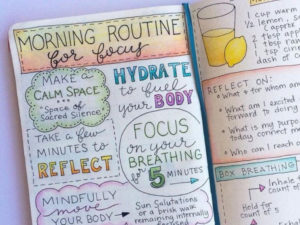 MORNING ROUTINE
for focus
MAKE A
CALM SPACE
* Space of
Sacred Silence
HYDRATE
to fuel
your BODY
TAKE A few
MINUTES to
REFLECT
FOCUS
on your
BREATHING
for 5
MINUTES
MINDFULLY
move
YOUR BODY
Sun Salutations
or a brisk walk
remaining internally
1 cup warm
1/2 lemon,
2 tbsp app
REFLECT ON:
• What + for whom am
• What am I excited
forward to doing
• What is my purpo
today connect
• Who can I reach
BOX BREATHING
Inhale
count of
Hold for
count of 5